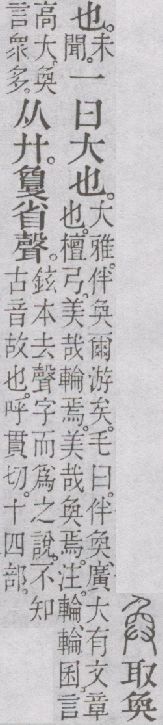 取奐
也。未聞。一曰大也。大雅。伴奐爾游矣。毛曰。伴奐、廣大有文章
也。檀弓。美哉輪焉。美哉奐焉。注。輪、輪囷。言
高大。奐、
言衆多。从廾。敻省聲。鉉本去聲字而爲之說。不知
古音故也。呼貫切。十四部。